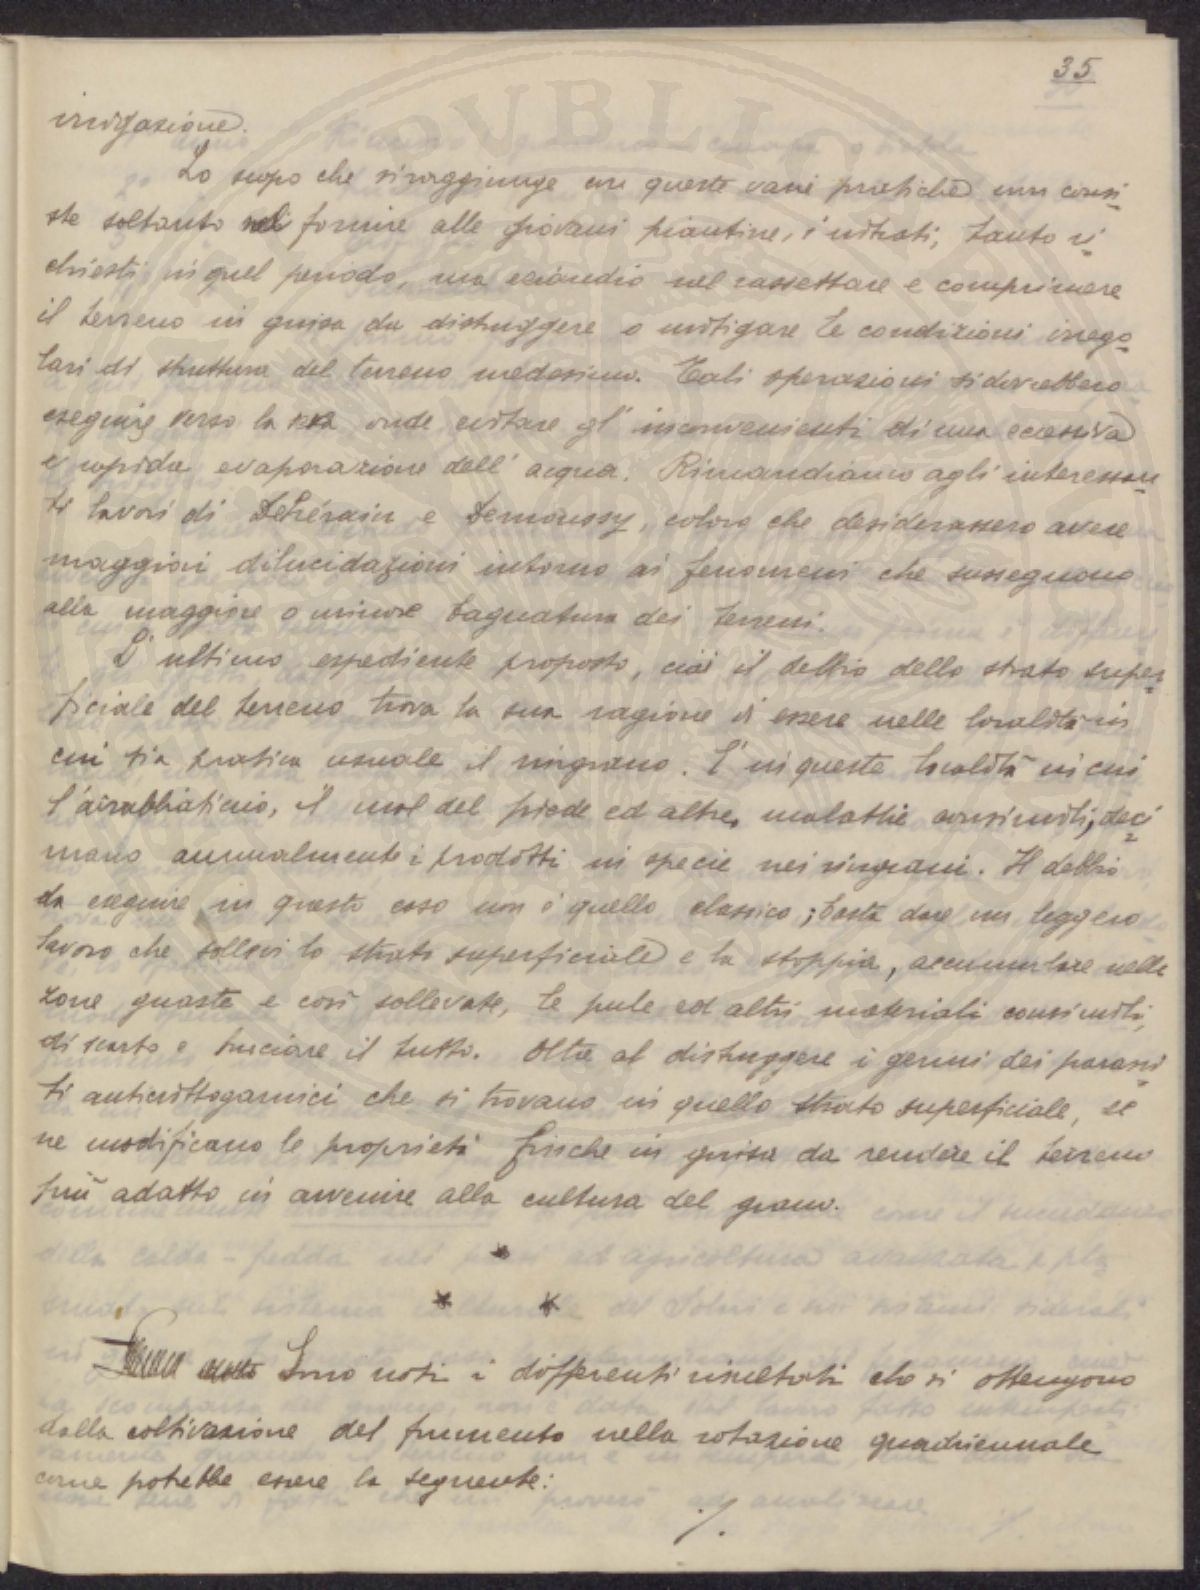 35
irrigazione.
Lo scopo che si raggiunge con queste varie pratiche non consi-
ste soltanto nel fornire alle giovani piantine, i nitrati, tanto ri-
chiesti in quel periodo, ma eziandio nel rassettare e comprimere
il terreno in guisa da distruggere o mitigare le condizioni irrego-
lari di struttura del terreno medesimo. Tali operazioni si dovrebbero
eseguire verso la sera onde evitare gl' inconvenienti di una eccessiva
e rapida evaporazione dell' acqua. Rimandiamo agli interessan-
ti lavori di Dehérain e Demoussy, coloro che desiderassero avere
maggiori dilucidazioni intorno ai fenomeni che susseguono
alla maggiore o minore bagnatura dei terreni.
L' ultimo espediente proposto, cioè il debbio dello strato super-
ficiale del terreno trova la sua ragione di essere nelle località in
cui sia pratica usuale il ringrano. E' in queste località in cui
l'arrabbiaticcio, il mal del piede ed altre malattie consimili, deci-
mano annualmente i prodotti in specie nei ringrani. Il debbio
da eseguire in questo caso non è quello classico; basta dare un leggero
lavoro che sollevi lo strato superficiale e la stoppia, accumulare nelle
zone guaste e così sollevate, le pule ed altri materiali consimili,
di scarto e bruciare il tutto. Oltre al distruggere i germi dei parassi-
ti anticrittogamici che si trovano in quello strato superficiale, se
ne modificano le proprietà fisiche in guisa da rendere il terreno
più adatto in avvenire alla cultura del grano.
*
* *
Sono noti i differenti risultati che si ottengono
dalla coltivazione del frumento nella rotazione quadriennale
come potrebbe essere la seguente:
./.